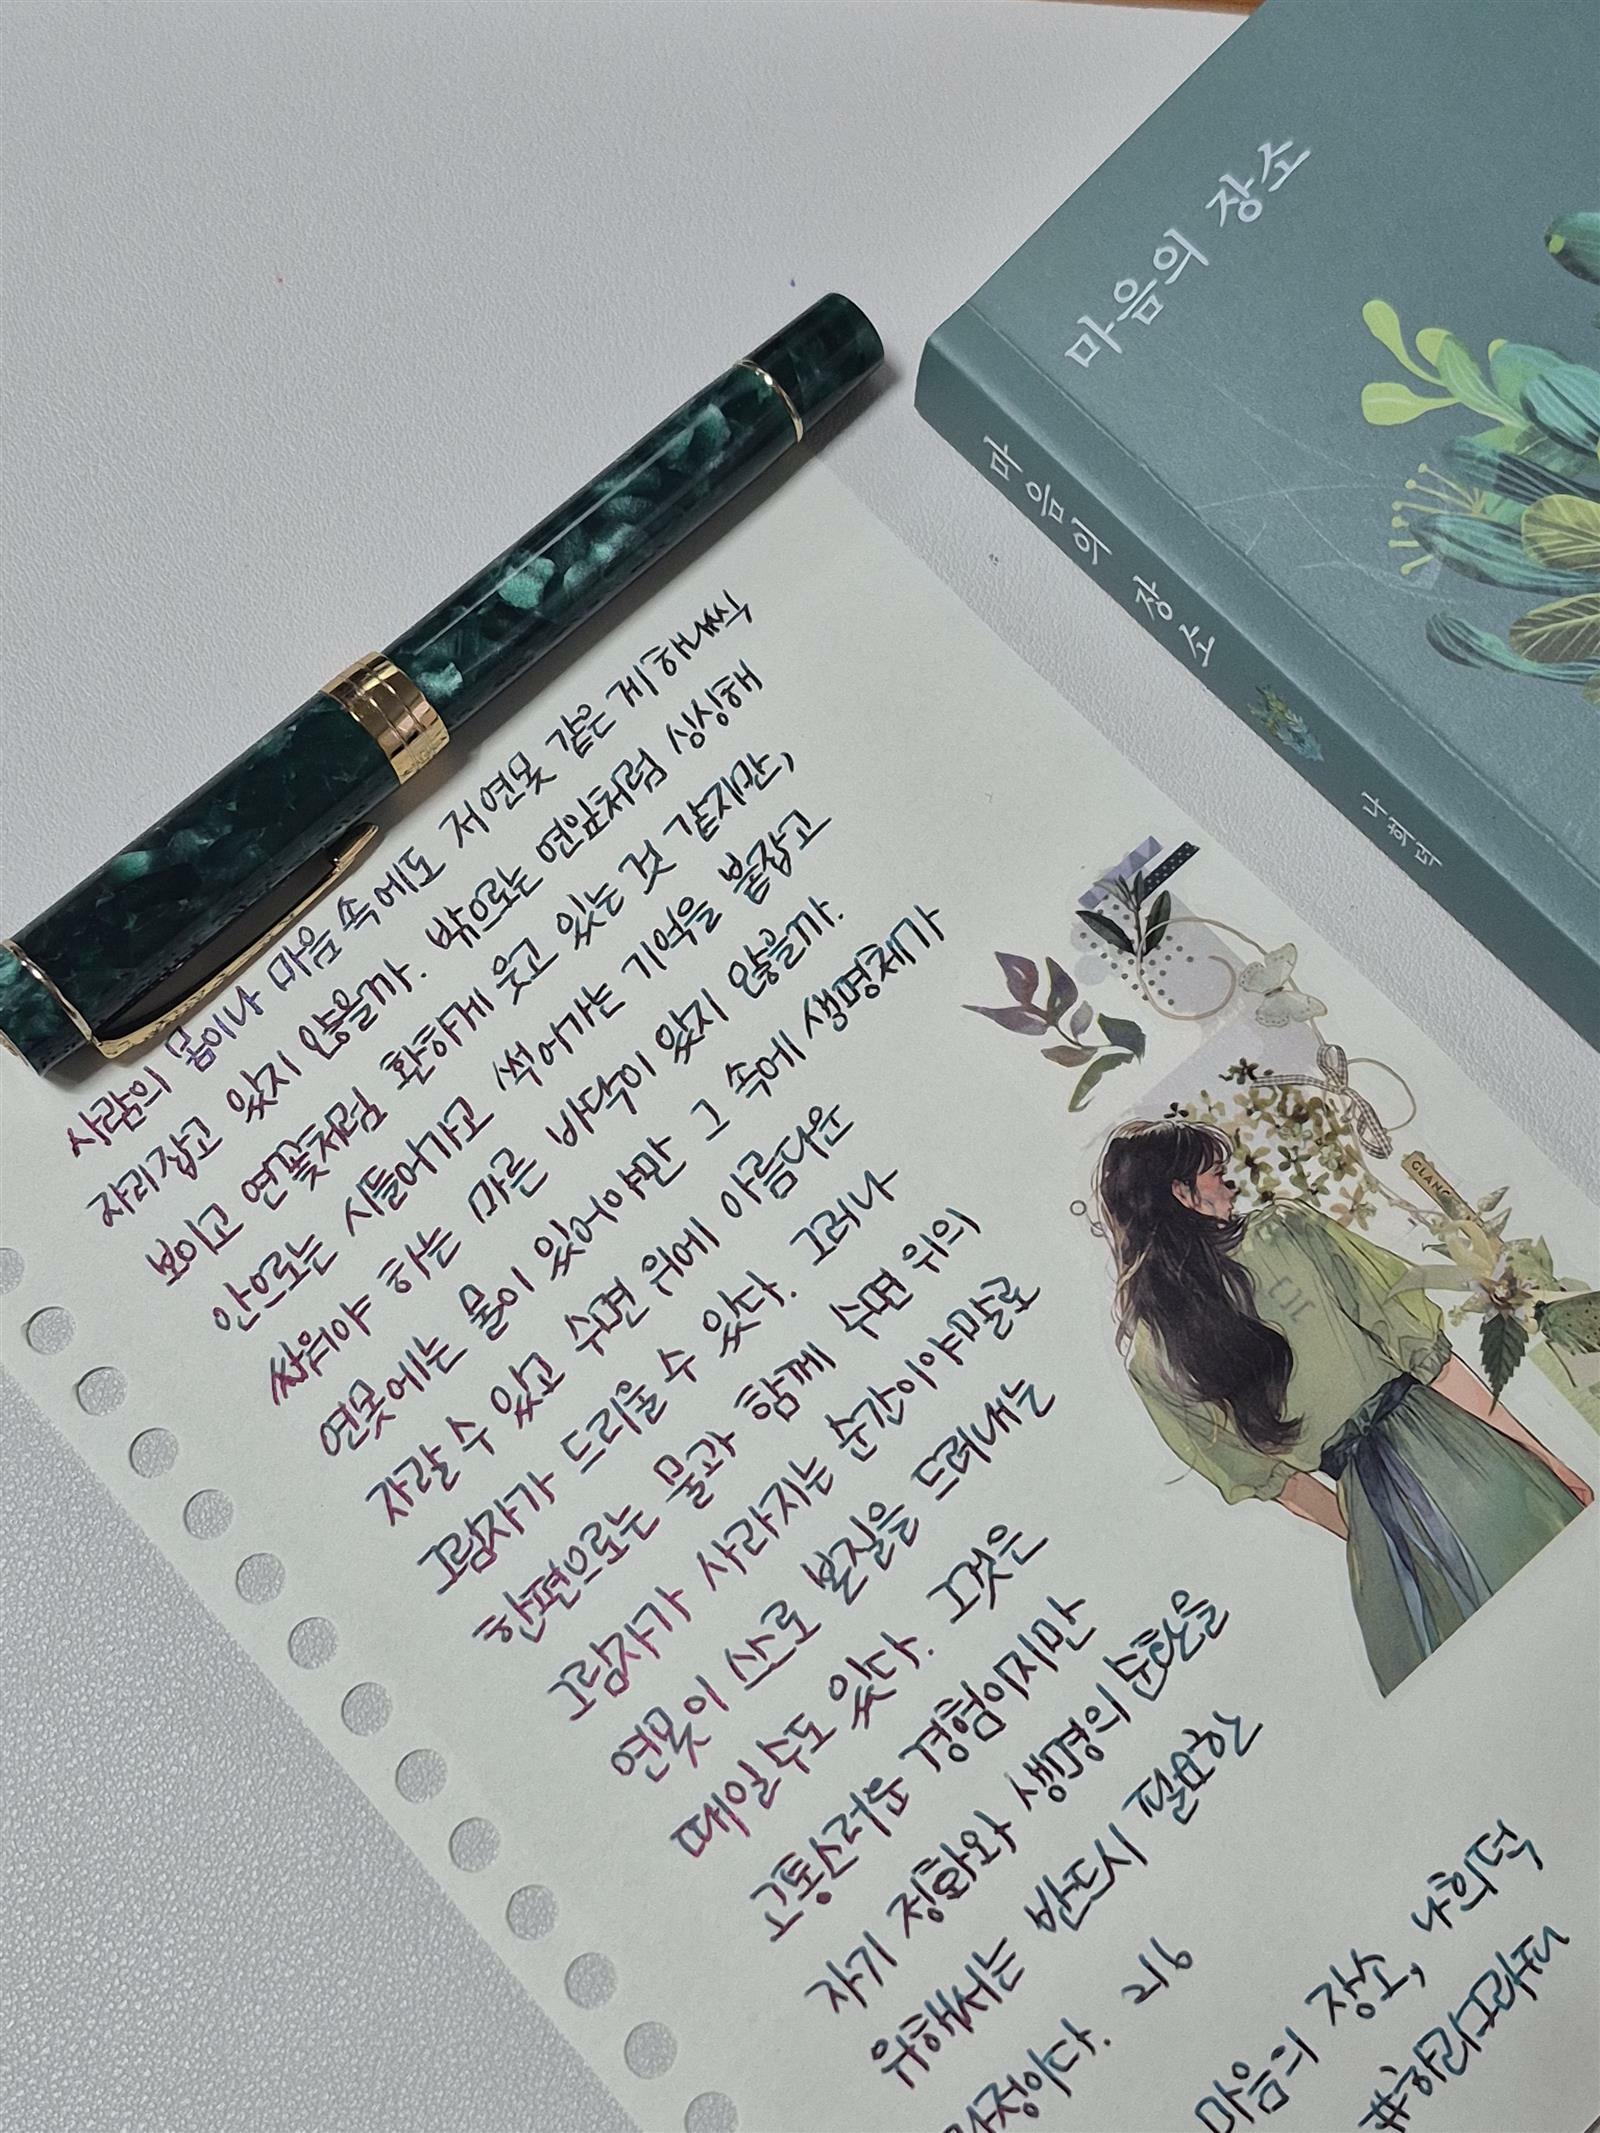 마음의 장소
마음의 장소
나희덕
사람의 몸이나 마음 속에도 저 연못 같은 게 하나씩
자리잡고 있지 않을까. 밖으로는 연잎처럼 싱싱해
보이고 연꽃처럼 환하게 웃고 있는 것 같지만,
안으로는 시들어가고 썩어가는 기억을 붙잡고
싸워야 하는 마른 바닥이 있지 않을까.
연못에는 물이 있어야만 그 속에 생명체가
자랄 수 있고 수면 위에 아름다운
그림자가 드리울 수 있다. 그러나
한편으로는 물과 함께 수면 위의
그림자가 사라지는 순간이야말로
연못이 스스로 본질을 드러내는
때일수도 있다. 그것은
고통스러운 경험이지만
자기 정화와 생명의 순환을
위해서는 반드시 필요한
과정이다. 216
마음의 장소, 나희덕
#하리그라피
GLANC